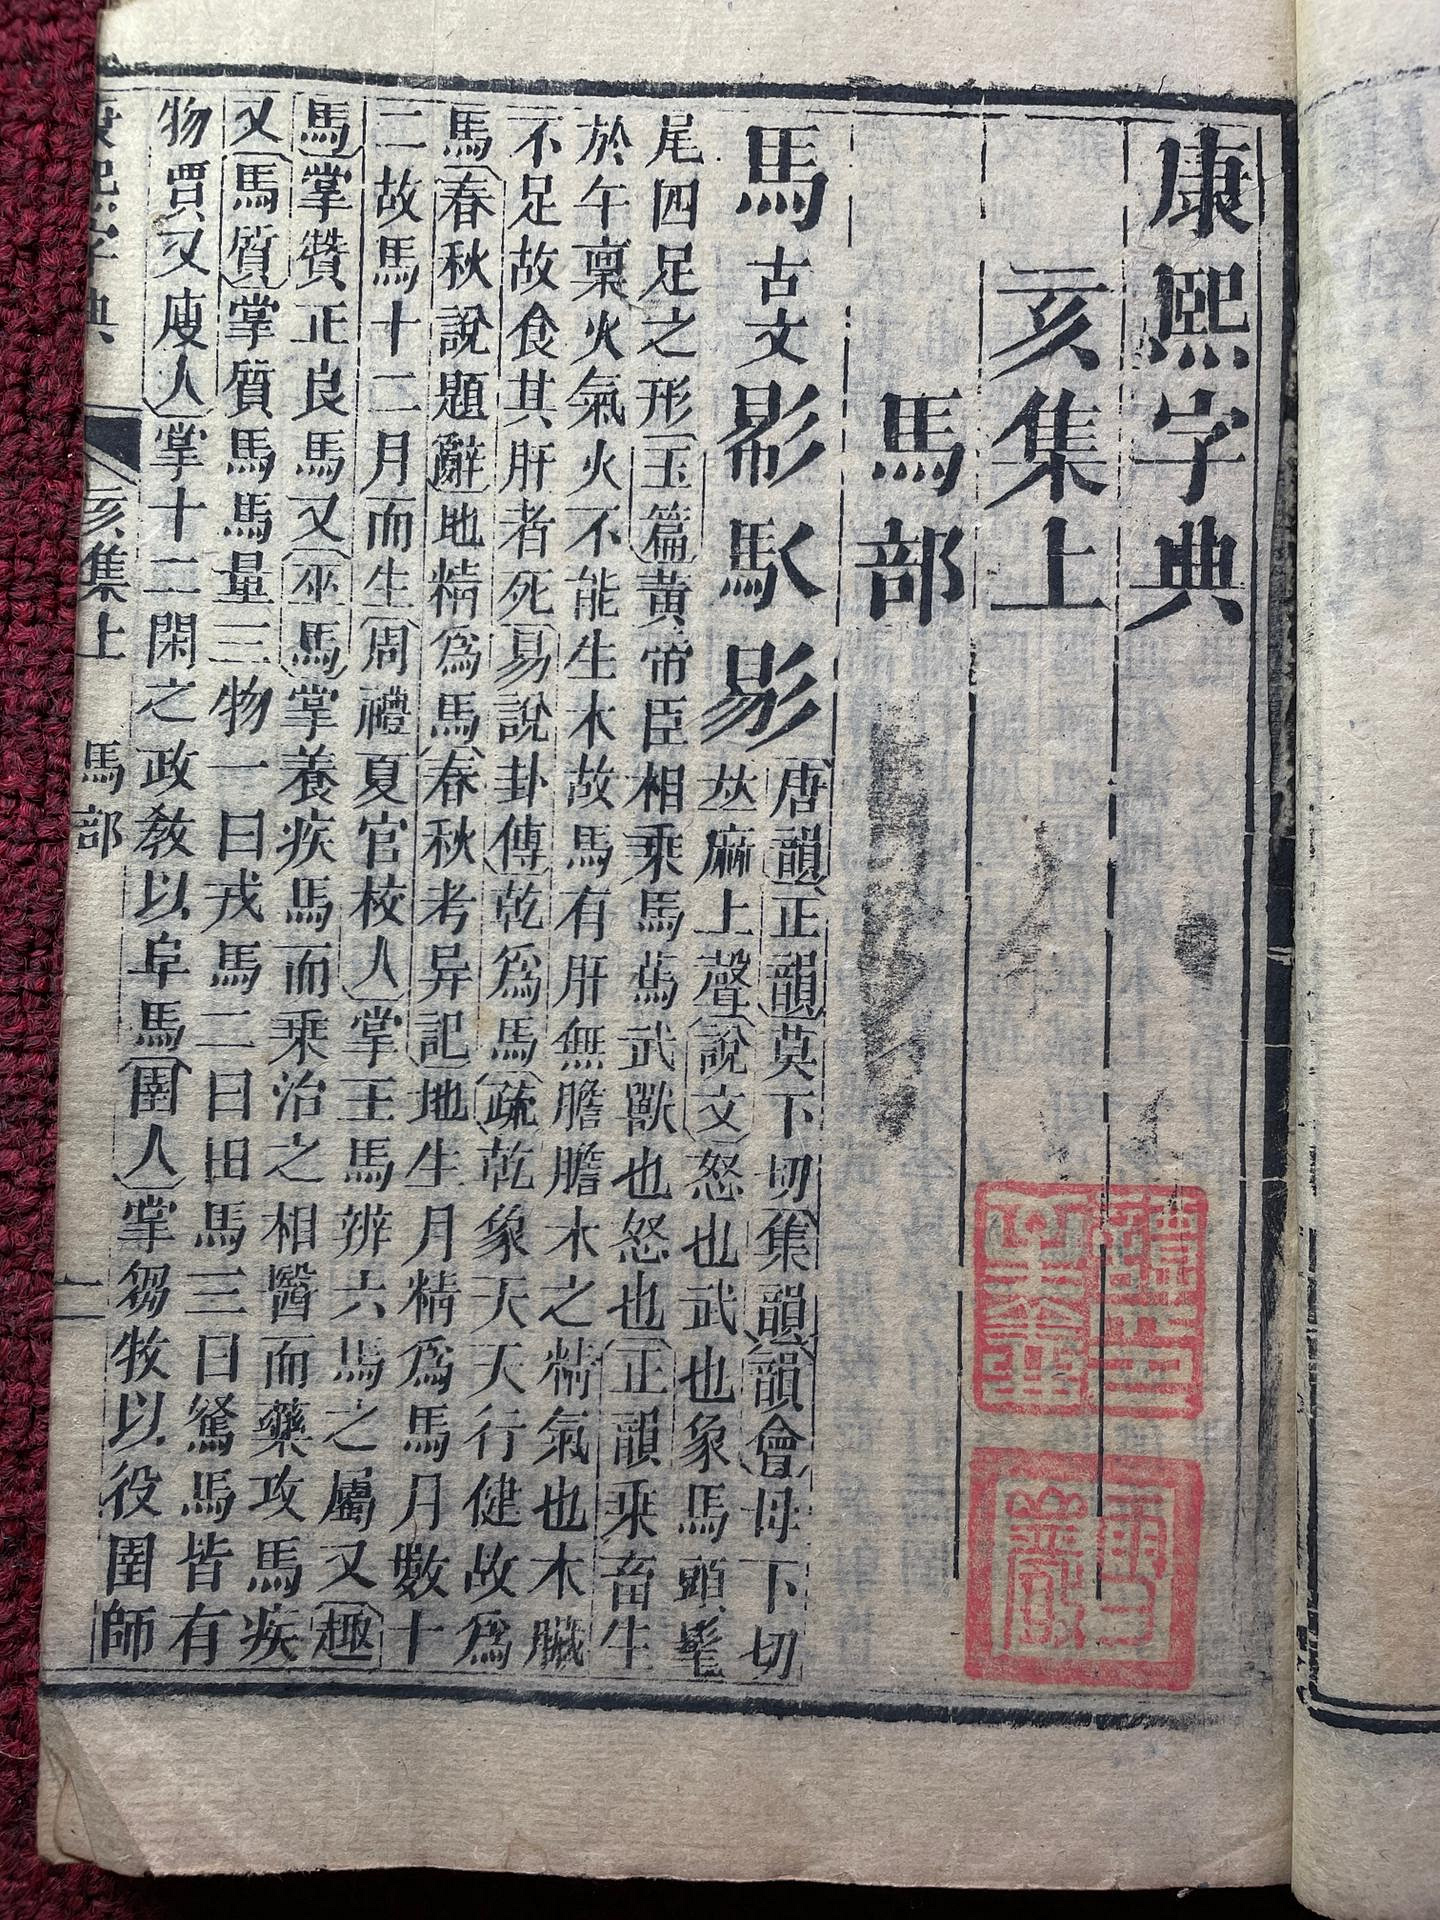 康熙字典
亥集上
馬部
馬古文影䭸影唐韻正韻莫下切集韻韻會母下切
𠀤麻上聲說文怒也武也象馬頭髦
尾四足之形玉篇黃帝臣相乘馬馬武獸也怒也正韻乘畜生
於午稟火氣火不能生木故馬有肝無膽膽木之精氣也木臟
不足故食其肝者死易說卦傳乾爲馬疏乾象天天行健故爲
馬春秋說題辭地精爲馬春秋考异記地生月精爲馬月數十
二故馬十二月而生周禮夏官校人掌王馬辨六馬之屬又趣
馬掌贊正良馬又巫馬掌養疾馬而乘治之相醫而藥攻馬疾
又馬質掌質馬馬量三物一曰戎馬二曰田馬三曰駑馬皆有
物賈又廋人掌十二閑之政教以阜馬圉人掌芻牧以役圉師
康熙字典 亥集上 馬部 一